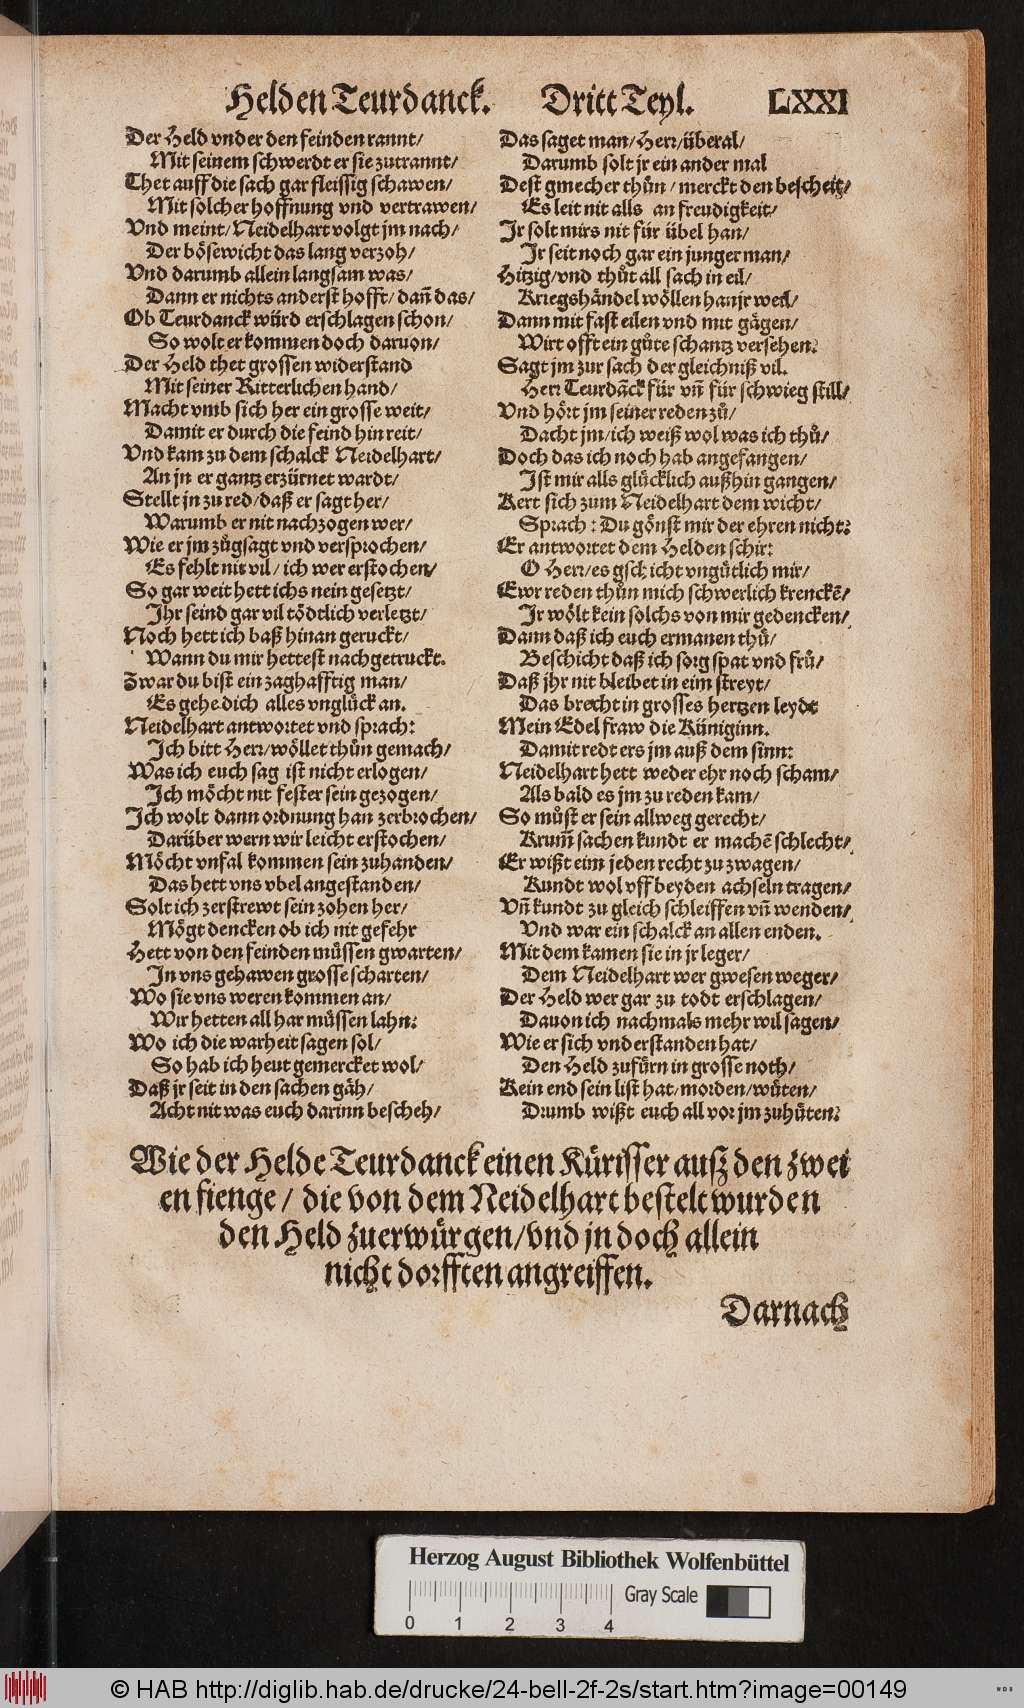 Helden Teurdanck. Dritt Teyl. LXXI
Der Held vnder den feinden rannt/
Mit seinem schwerdt er sie zutrannt/
Thet auff die sach gar fleissig schawen/
Mit solcher hoffnung vnd vertrawen/
Vnd meint/ Neidelhart volgt jm nach/
Der bösewicht das lang verzoh/
Vnd darumb allein langsam was/
Dann er nichts anderst hofft/ dañ das/
Ob Teurdanck würd erschlagen schon/
So wolt er kommen doch daruon/
Der Held thet grossen widerstand
Mit seiner Ritterlichen hand/
Macht vmb sich her ein grosse weit/
Damit er durch die feind hin reit/
Vnd kam zu dem schalck Neidelhart/
An jn er gantz erzürnet wardt/
Stellt jn zu red/ daß er sagt her/
Warumb er nit nachzogen wer/
Wie er jm zůgsagt vnd versprochen/
Es fehlt nit vil/ ich wer erstochen/
So gar weit hett ichs nein gesetzt/
Ihr seind gar vil tödtlich verletzt/
Noch hett ich baß hinan geruckt/
Wann du mir hettest nachgetruckt.
Zwar du bist ein zaghafftig man/
Es gehe dich alles vnglück an.
Neidelhart antwortet vnd sprach:
Ich bitt Herr/ wöllet thůn gemach/
Was ich euch sag ist nicht erlogen/
Ich möcht nit fester sein gezogen/
Ich wolt dann ordnung han zerbrochen/
Darüber wern wir leicht erstochen/
Möcht vnfal kommen sein zuhanden/
Das hett vns vbel angestanden/
Solt ich zerstrewt sein zohen her/
Mögt dencken ob ich nit gefehr
Hett von den feinden müssen gwarten/
In vns gehawen grosse scharten/
Wo sie vns weren kommen an/
Wir hetten all har müssen lahn:
Wo ich die warheit sagen sol/
So hab ich heut gemercket wol/
Daß jr seit in den sachen gäh/
Acht nit was euch darinn bescheh/
Das saget man/ Herr/ überal/
Darumb solt jr ein ander mal
Dest gmecher thůn/ merckt den bescheit/
Es leit nit alls an freudigkeit/
Ir solt mirs nit für übel han/
Ir seit noch gar ein junger man/
Hitzig/ vnd thůt all sach in eil/
Kriegshändel wöllen han jr weil/
Dann mit fast eilen vnd mit gägen/
Wirt offt ein gůte schantz versehen.
Sagt jm zur sach der gleichniß vil.
Herr Teurdãck für vñ für schwieg still/
Vnd hört jm seiner reden zů/
Dacht jm/ ich weiß wol was ich thů/
Doch das ich noch hab angefangen/
Ist mir alls glücklich außhin gangen/
Kert sich zum Neidelhart dem wicht/
Sprach: Du gönst mir der ehren nicht:
Er antwortet dem Helden schir:
O Herr/ es gschicht vngütlich mir/
Ewr reden thůn mich schwerlich krenckẽ/
Ir wölt kein solchs von mir gedencken/
Dann daß ich euch ermanen thů/
Beschicht daß ich sorg spat vnd frů/
Daß jhr nit bleibet in eim streyt/
Das brecht in grosses hertzen leydt
Mein Edel fraw die Küniginn.
Damit redt ers jm auß dem sinn:
Neidelhart hett weder ehr noch scham/
Als bald es jm zu reden kam/
So můst er sein allweg gerecht/
Krum̃ sachen kundt er machẽ schlecht/
Er wißt eim jeden recht zu zwagen/
Kundt wol vff beyden achseln tragen/
Vñ kundt zu gleich schleiffen vñ wenden/
Vnd war ein schalck an allen enden.
Mit dem kamen sie in jr leger/
Dem Neidelhart wer gwesen weger/
Der Held wer gar zu todt erschlagen/
Dauon ich nachmals mehr wil sagen/
Wie er sich vnderstanden hat/
Den Held zufürn in grosse noth/
Kein end sein list hat/ morden/ wüten/
Drumb wißt euch all vor jm zuhüten:
Wie der Helde Teurdanck einen Kürisser ausz den zwei
en fienge/ die von dem Neidelhart bestelt wurden
den Held zuerwürgen/ vnd jn doch allein
nicht dorfften angreiffen.
Darnach
Herzog August Bibliothek Wolfenbüttel
Gray Scale
0 1 2 3 4
© HAB http://diglib.hab.de/drucke/24-bell-2f-2s/start.htm?image=00149